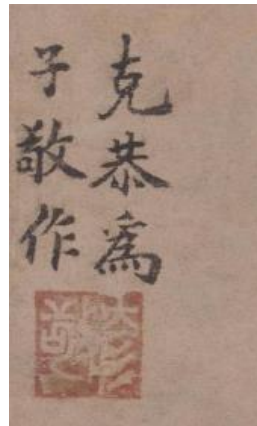 克恭為
子敬作